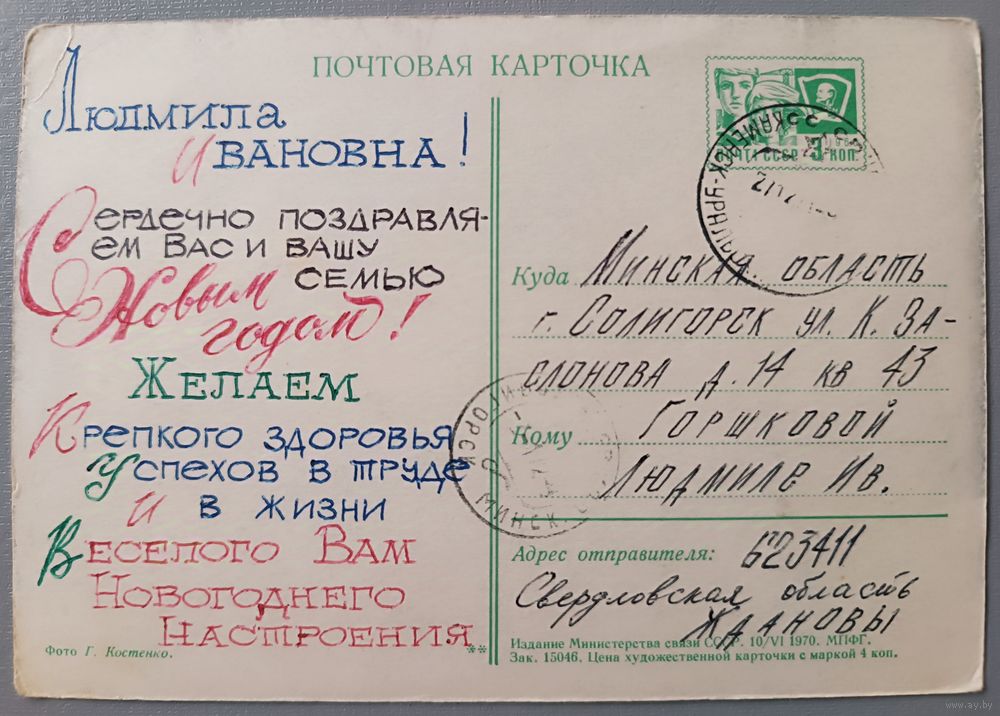 ПОЧТОВАЯ КАРТОЧКА
Людмила
Ивановна!
Сердечно поздравля-
ем Вас и вашу
семью
С Новым
годом!
Желаем
Крепкого здоровья
Успехов в труде
и в жизни
Веселого Вам
Новогоднего
Настроения
Фото Г. Костенко.
**
ПОЧТА СССР 3 КОП.
КАМЕНСК-УРАЛ
Куда Минская область
г. Солигорск ул. К. За-
слонова д. 14 кв 43
Кому Горшковой
Людмиле Ив.
ГОРСК МИНСК.
Адрес отправителя: 623411
Свердловская область
Ждановы
Издание Министерства связи СССР. 10/VI 1970. МПФГ.
Зак. 15046. Цена художественной карточки с маркой 4 коп.
www.ay.by